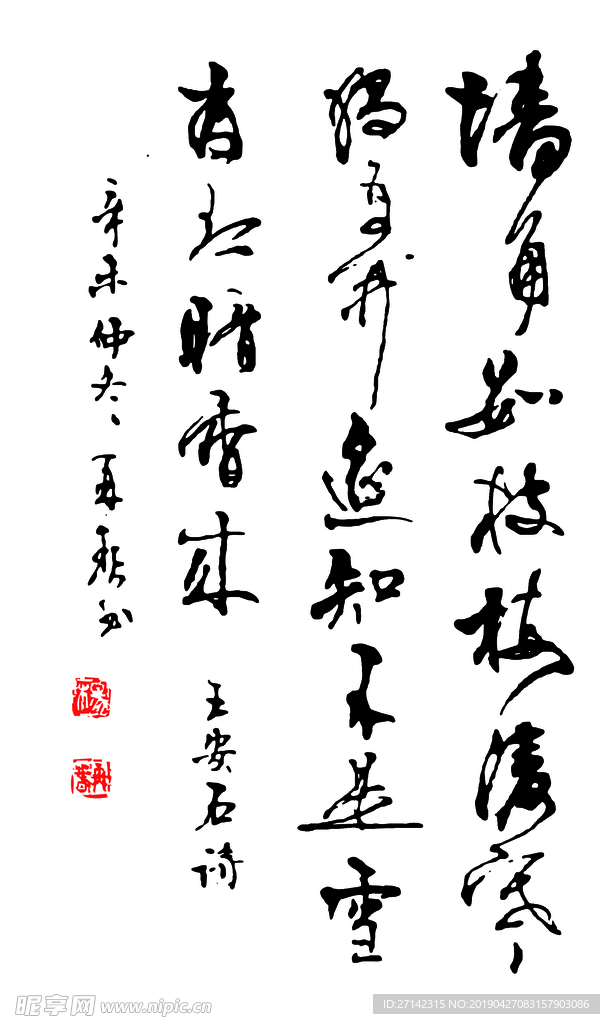 墙角数枝梅凌寒
独自开遥知不是雪
有暗香来
王安石诗
辛未仲冬再书
昵享网 www.nipic.cn
ID:27142315 NO:20190427083157903086